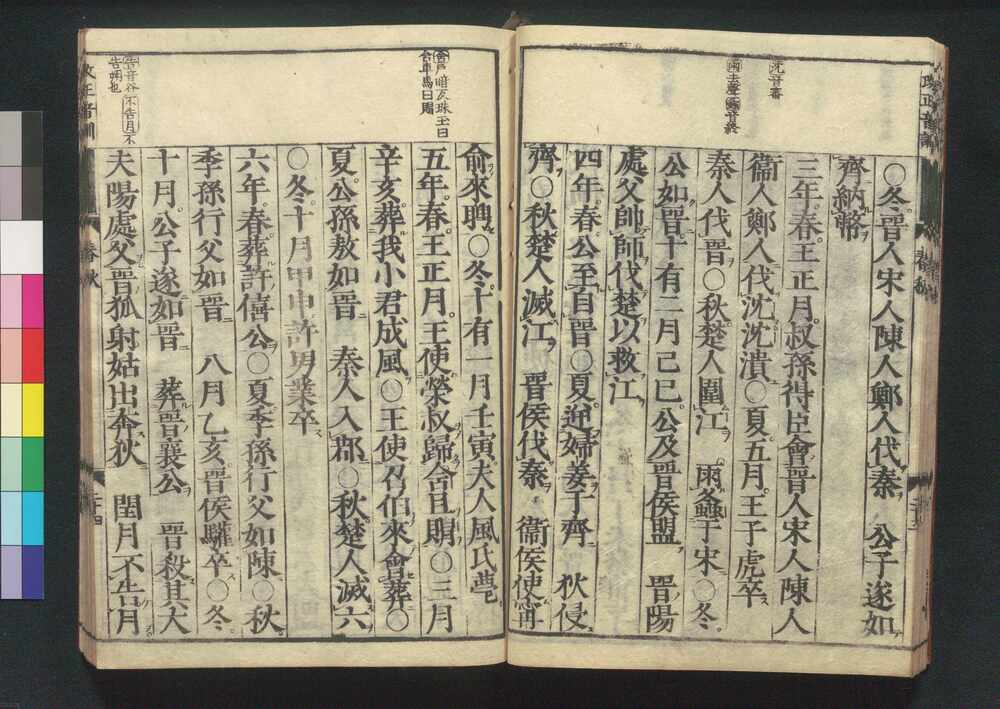 改正音訓
春秋
沈音審
雨去聲螽音終
〇冬晉人宋人陳人鄭人伐秦　公子遂如
齊納幣
三年春王正月叔孫得臣會晉人宋人陳人
衞人鄭人伐沈沈潰〇夏五月王子虎卒
秦人伐晉〇秋楚人圍江　雨螽于宋〇冬
公如晉十有二月己巳公及晉侯盟　晉陽
處父帥師伐楚以救江
四年春公至自晉〇夏逆婦姜于齊　狄侵
齊〇秋楚人滅江　晉侯伐秦　衞侯使甯
含戶暗反珠玉曰
含車馬曰賵
告音谷　不告月不
告朔也
俞來聘〇冬十有一月壬寅夫人風氏薨
五年春王正月王使榮叔歸含且賵〇三月
辛亥葬我小君成風〇王使召伯來會葬〇
夏公孫敖如晉　秦人入鄀〇秋楚人滅六
〇冬十月甲申許男業卒
六年春葬許僖公〇夏季孫行父如陳〇秋
季孫行父如晉　八月乙亥晉侯驩卒〇冬
十月公子遂如晉　葬晉襄公　晉殺其大
夫陽處父晉狐射姑出奔狄　閏月不告月
改正音訓
春秋
二十四